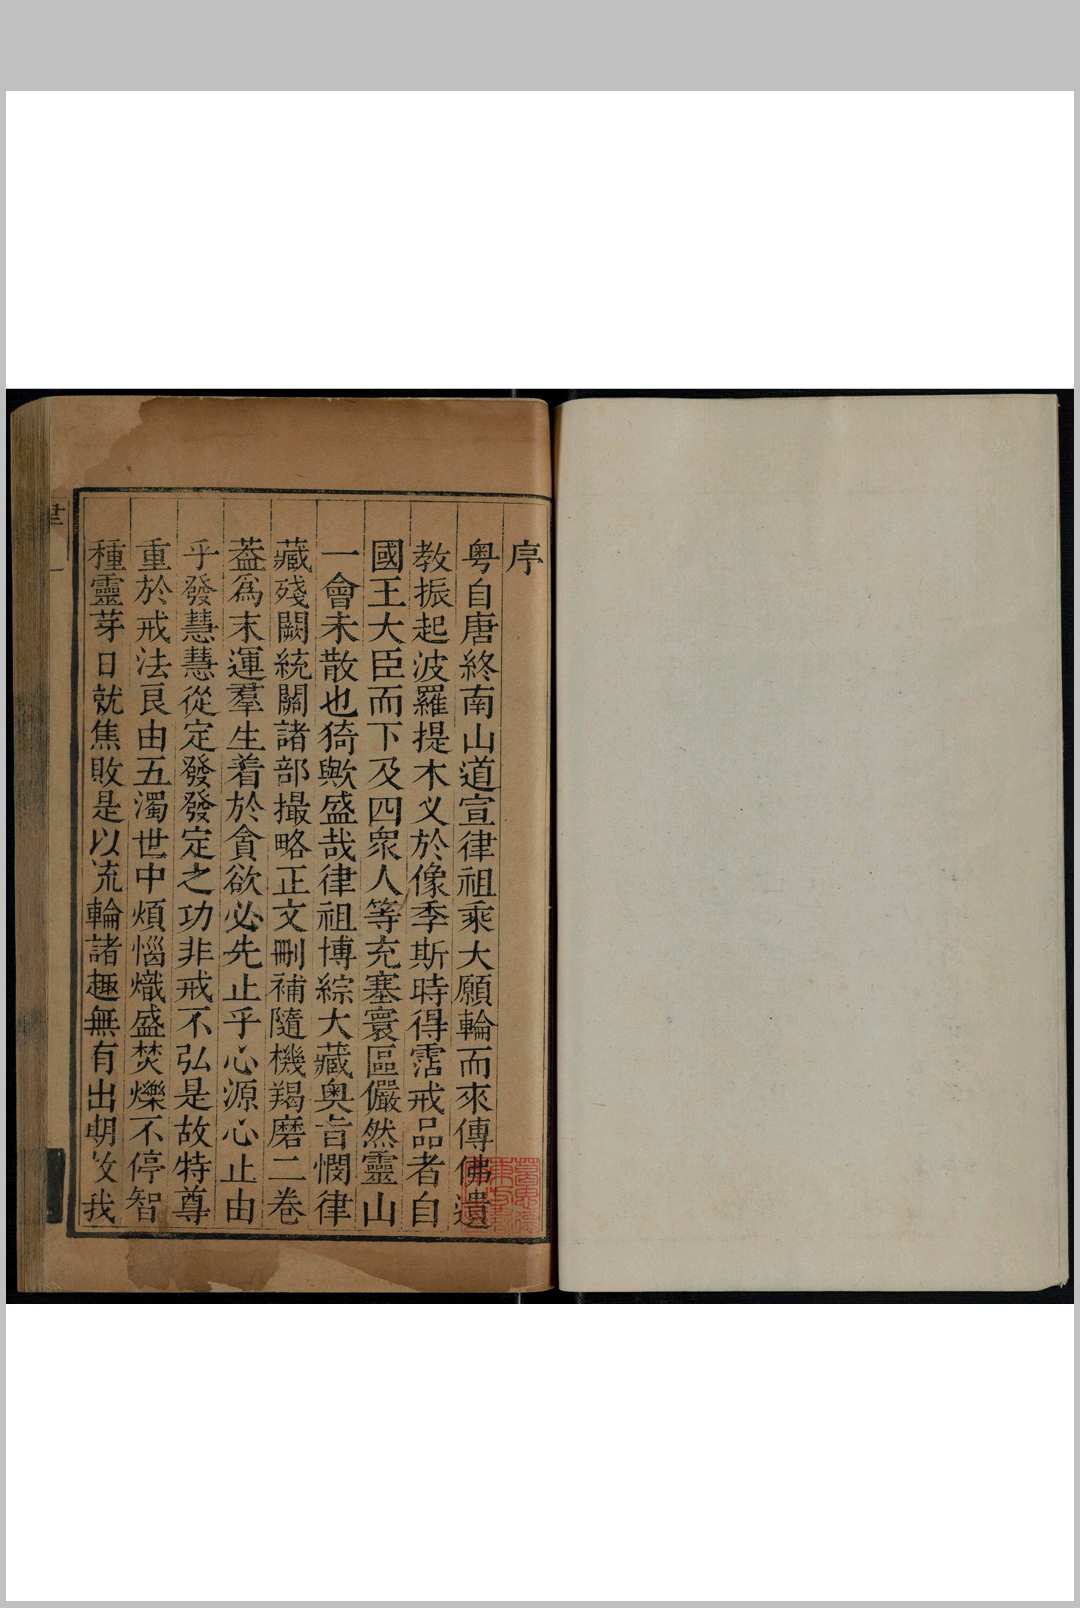 序
粤自唐終南山道宣律祖乘大願輪而來傳佛遺
教振起波羅提木义於像季斯時得霑戒品者自
國王大臣而下及四衆人等充塞寰區儼然靈山
一會未散也猗歟盛哉律祖博綜大藏奥旨憫律
藏殘闕統關諸部撮略正文刪補隨機羯磨二卷
葢爲末運羣生着於貪欲必先止乎心源心止由
乎發慧慧從定發發定之功非戒不弘是故特尊
重於戒法良由五濁世中煩惱熾盛焚爍不停智
種靈芽日就焦敗是以流輪諸趣無有出期故我